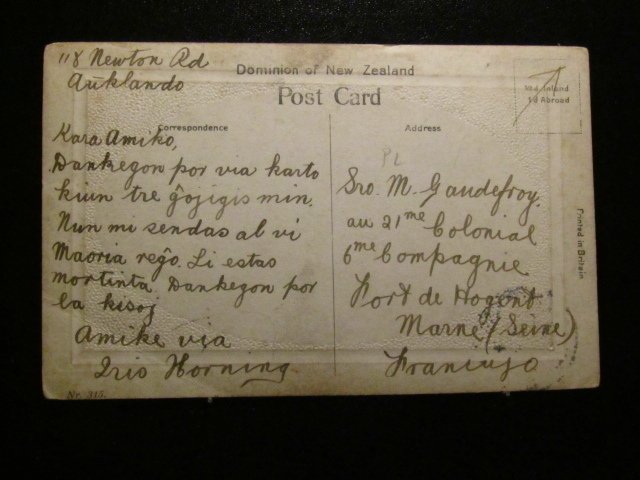 118 Newton Rd
Aŭklando
Dominion of New Zealand
Post Card
½d. Inland
1d Abroad
Correspondence
Kara Amiko,
Dankegon por via karto
kiun tre ĝojigis min.
Nun mi sendas al vi
Maoria reĝo. Li estas
mortinta. Dankegon por
la kisoj
Amike via
Iris Horning
Nr. 315.
Address
PL
Sro. M. Gaudefroy.
au 21me Colonial
6me Compagnie
Fort de Nogent
Marne (Seine)
Francujo
Printed in Britain